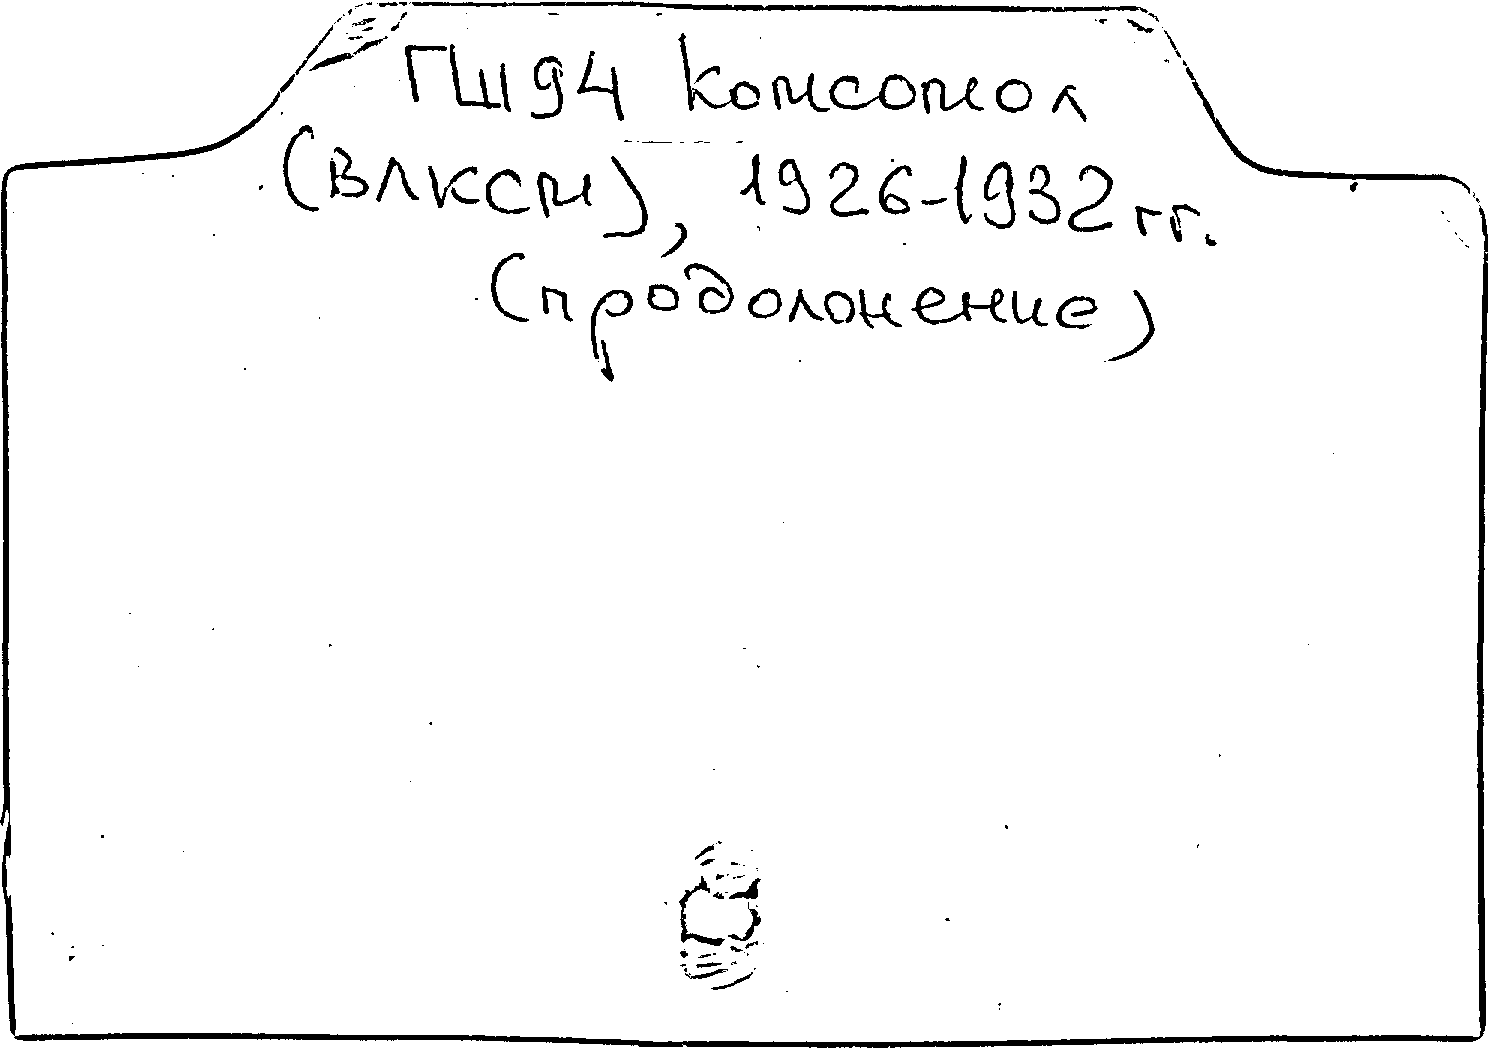 ГШ94 Комсомол
(ВЛКСМ), 1926-1932 гг.
(продолжение)